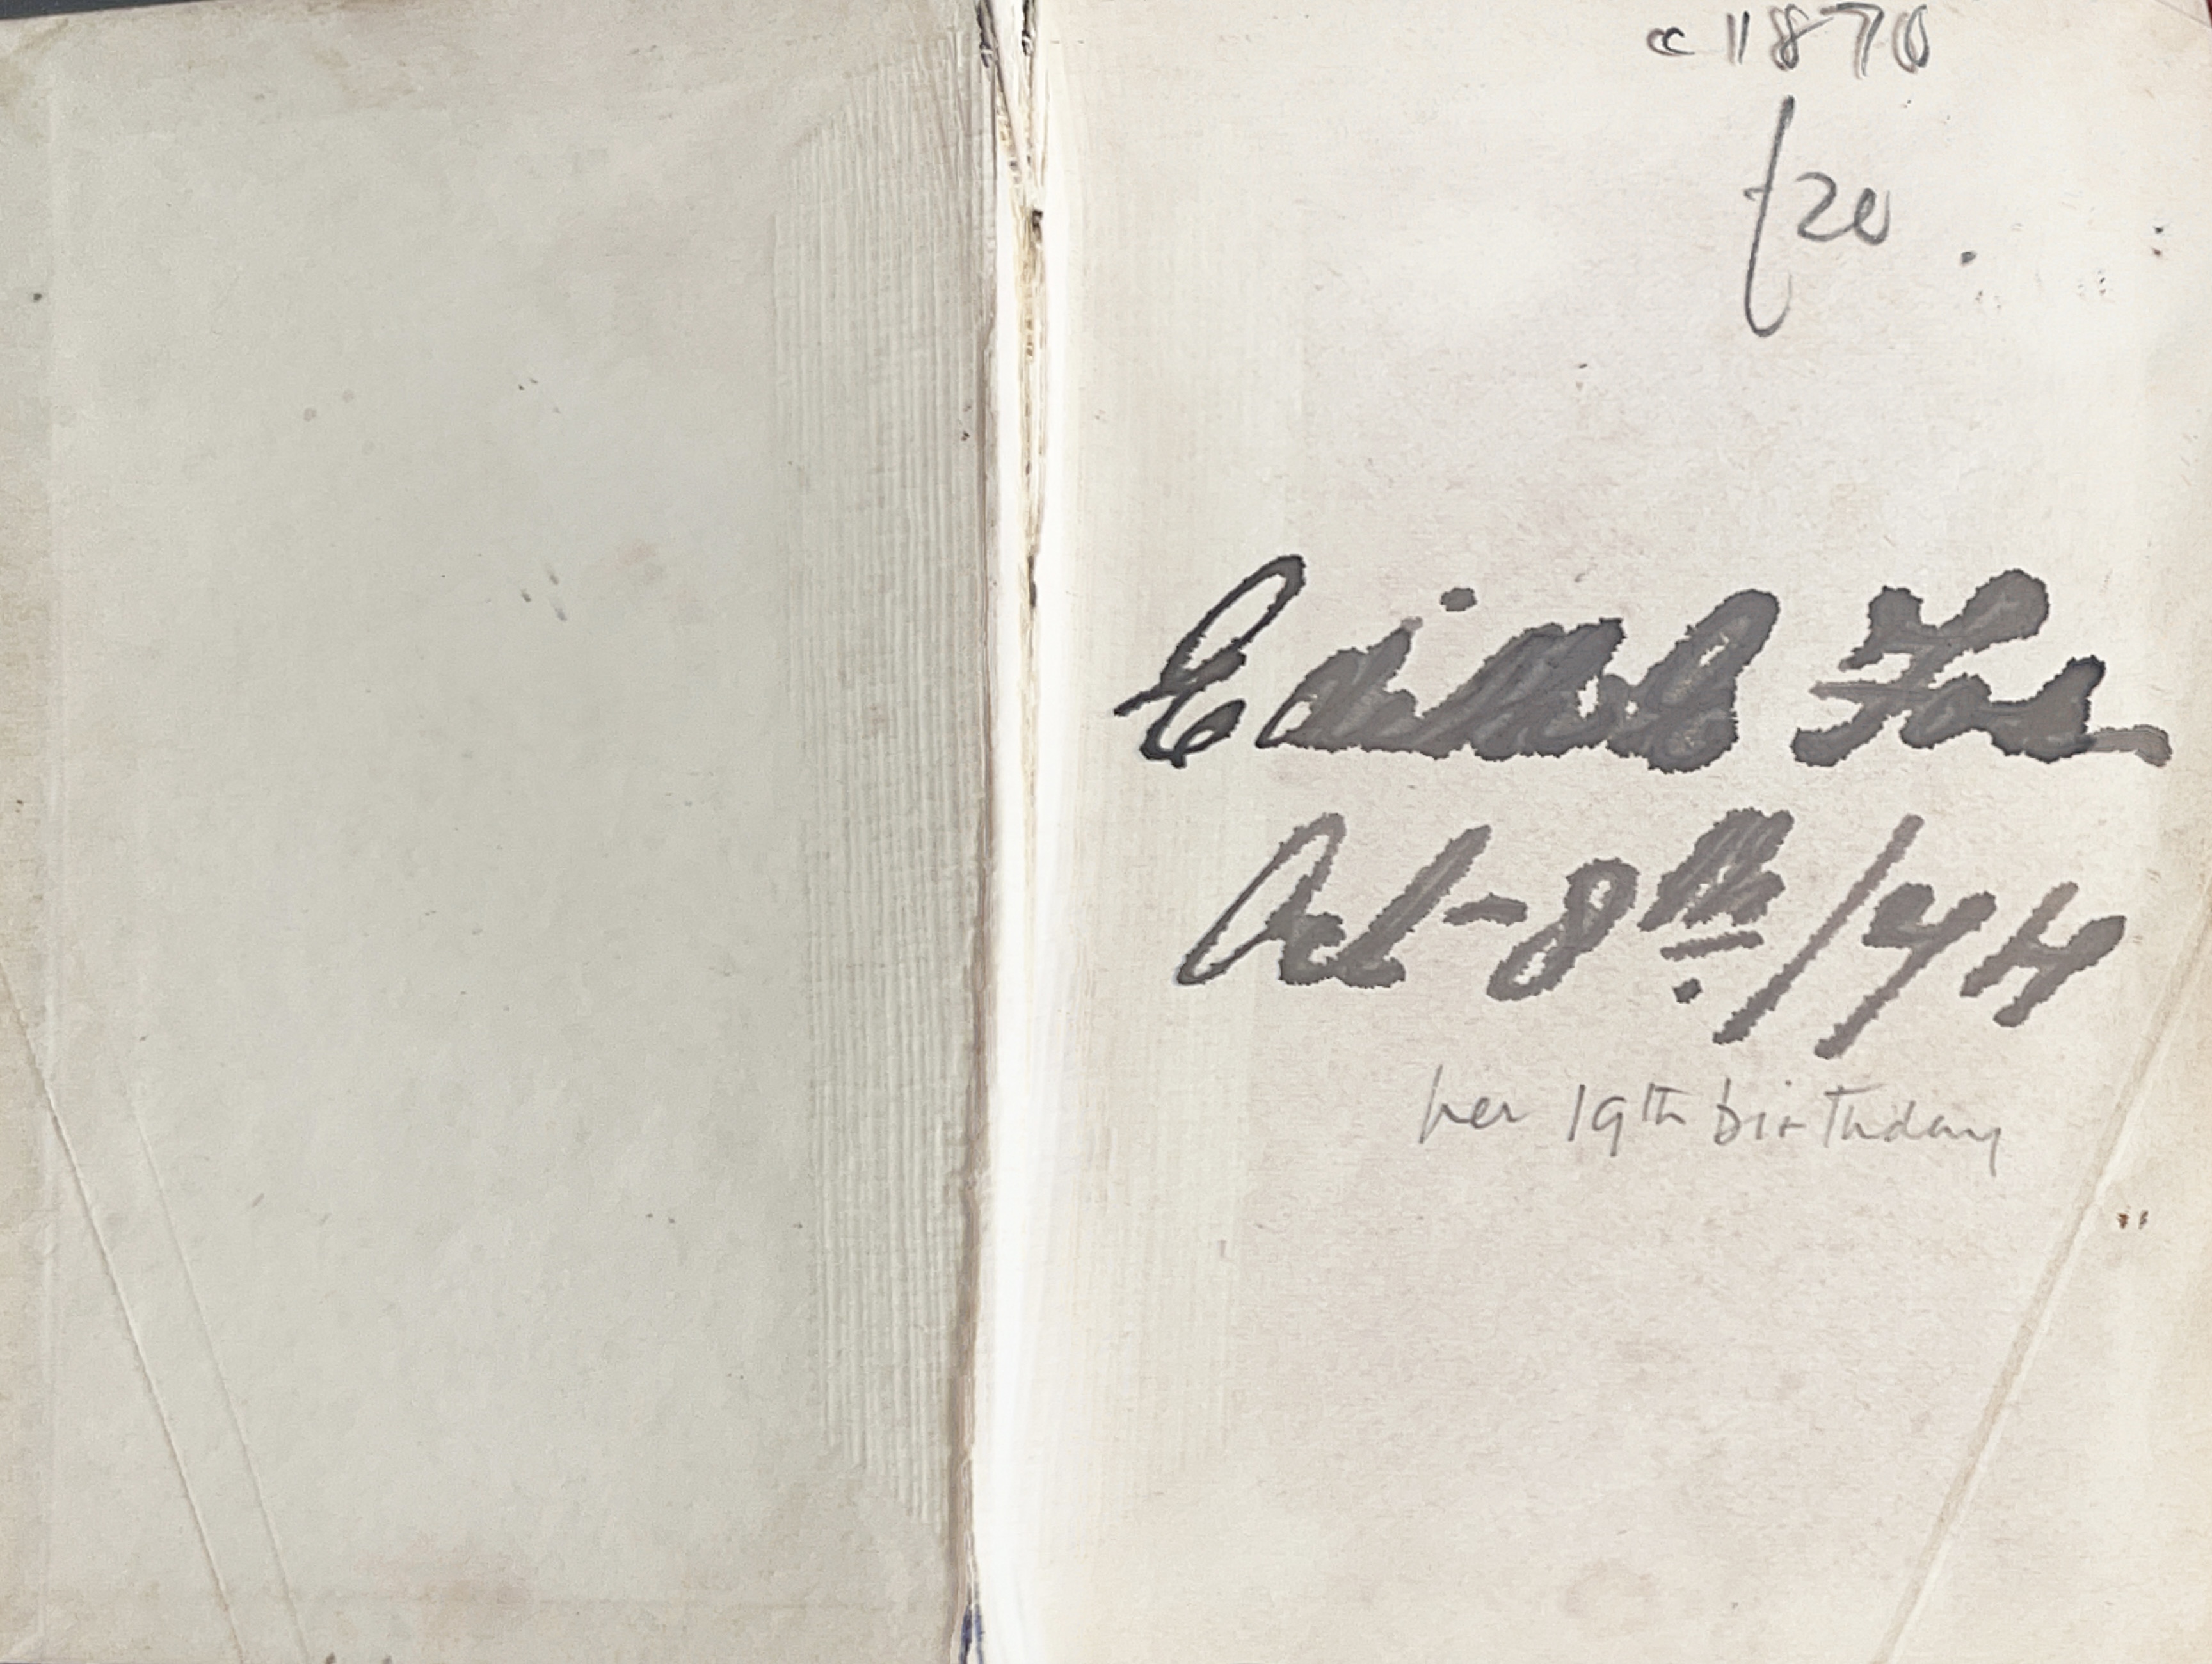 c 1870
£20
Edith Fox
Oct - 8th / 74
her 19th birthday